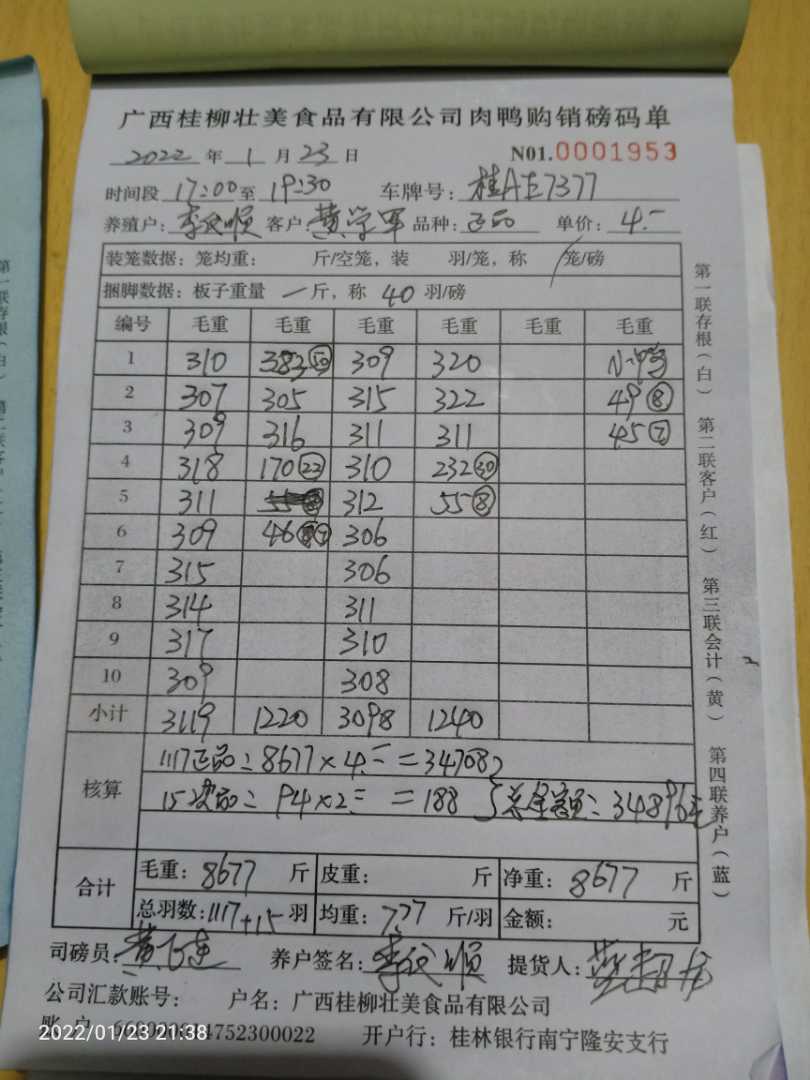 广西桂柳壮美食品有限公司肉鸭购销磅码单
2022 年 1 月 23 日 N01.0001953
时间段 17:00 至 19:30 车牌号: 桂AE7377
养殖户: 李 顺 客户: 黄学军 品种: 正品 单价: 4.一
装笼数据: 笼均重: 斤/空笼, 装 羽/笼, 称 笼/磅
捆脚数据: 板子重量 一 斤, 称 40 羽/磅
编号 毛重 毛重 毛重 毛重 毛重 毛重
1 310 383 50 309 320
2 307 305 315 322 49 8
3 309 316 311 311 45 7
4 318 170 22 310 232 30
5 311 312 55 8
6 309 46 306
7 315 306
8 314 311
9 317 310
10 309 308
小计 3119 1220 3098 1240
核算
1117正品: 8677×4.一=34708
15次品: 94×2.一=188 总金额: 34896元
合计
毛重: 8677 斤 皮重: 斤 净重: 8677 斤
总羽数: 1117+15 羽 均重: 7.77 斤/羽 金额: 元
司磅员: 黄 养户签名: 李 顺 提货人:
公司汇款账号: 户名: 广西桂柳壮美食品有限公司
账 户 4752300022 开户行: 桂林银行南宁隆安支行
第一联存根(白) 第二联客户(红) 第三联会计(黄) 第四联养户(蓝)
2022/01/23 21:38